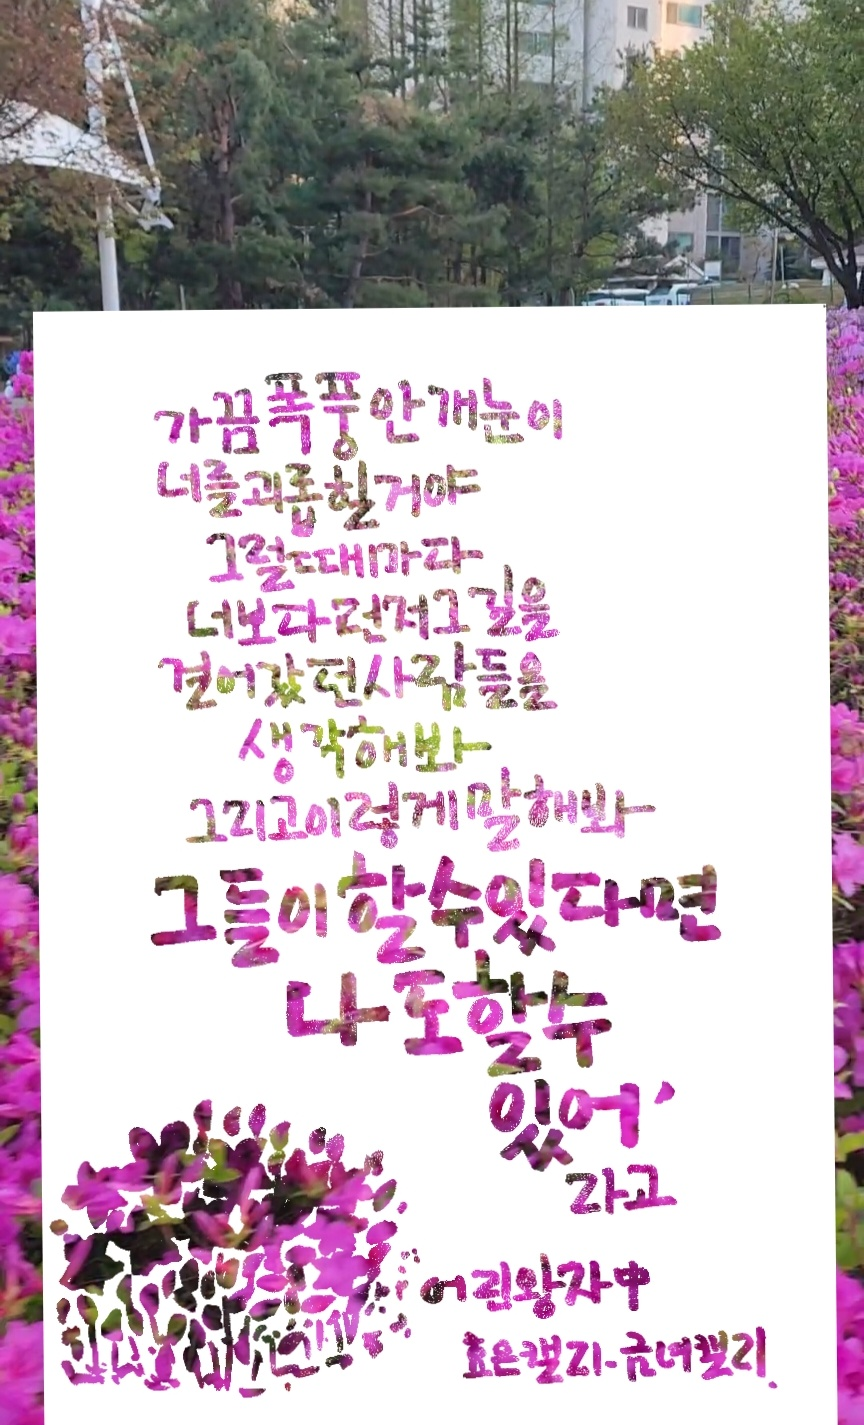 가끔폭풍안개눈이
너를괴롭힐거야
그럴때마다
너보다먼저그길을
걸어갔던사람들을
생각해봐
그리고이렇게말해봐
그들이할수있다면
나도할수
있어'
라고
어린왕자中
효은캘리-금녀캘리.